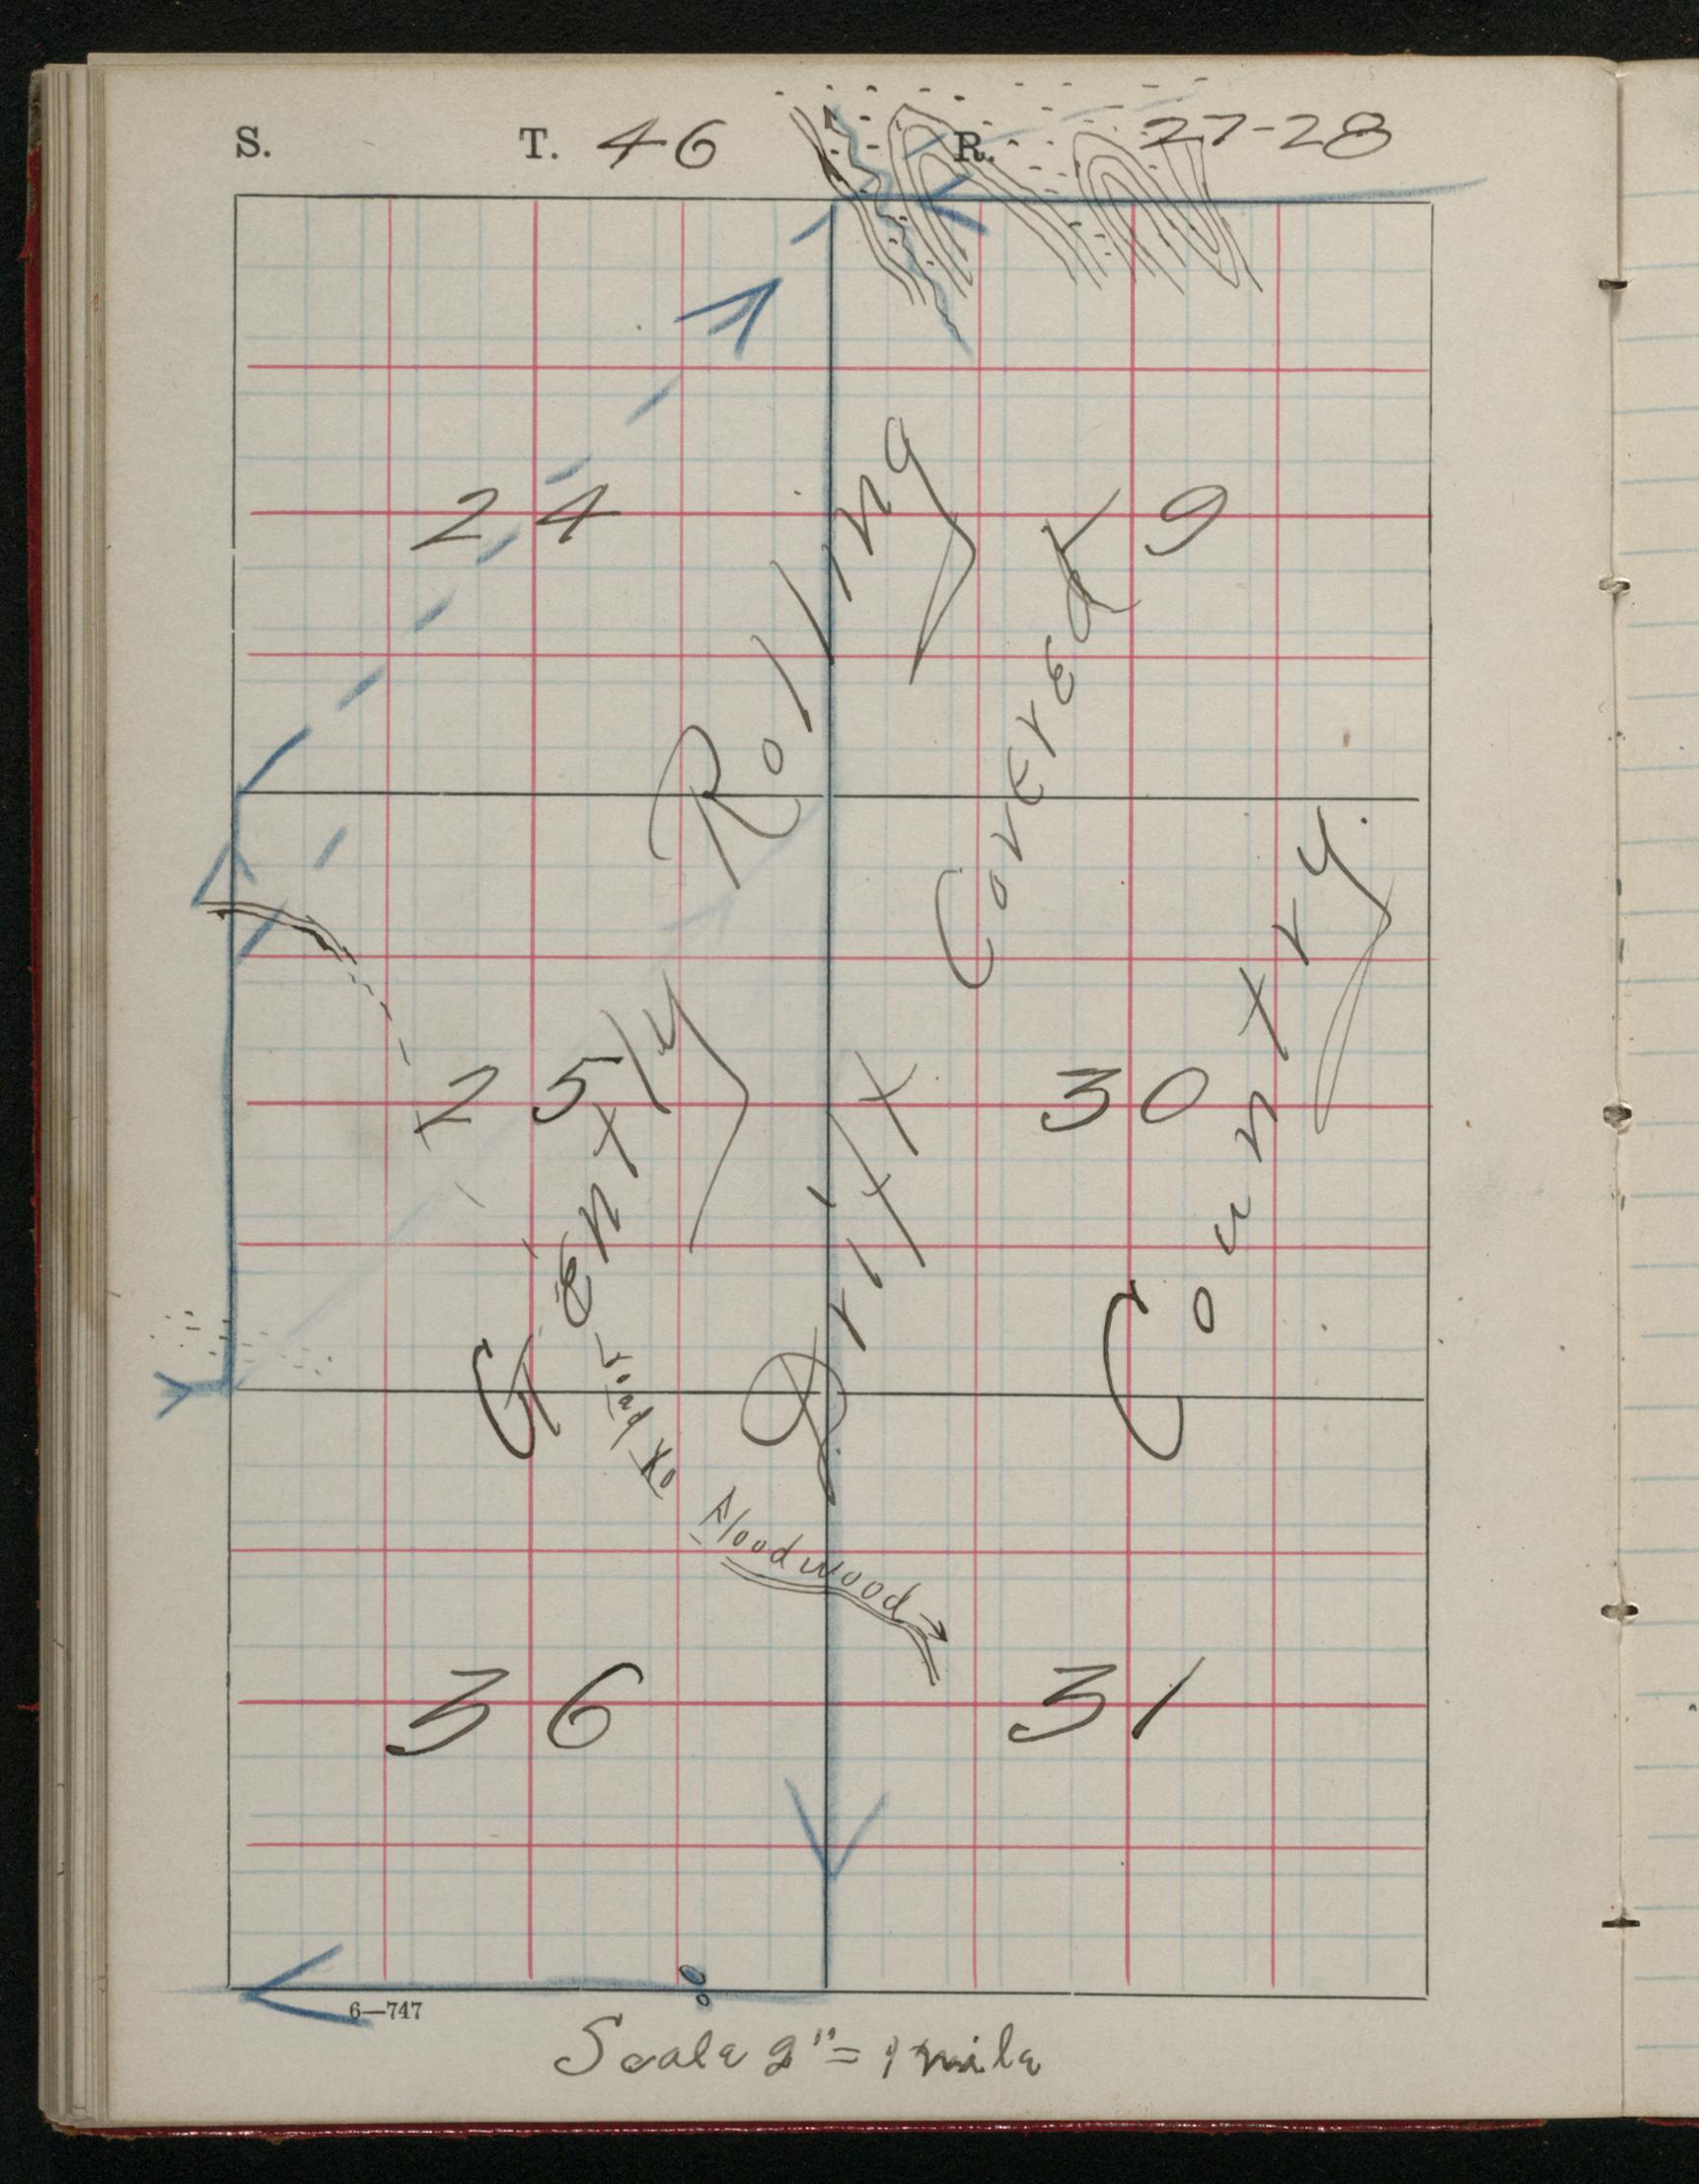 S. T. 46 R. 27-28
24 19
25 30
Gently Rolling
Drift Covered
Country.
road to Floodwood
36 31
6—747
Scale 2" = 1 mile